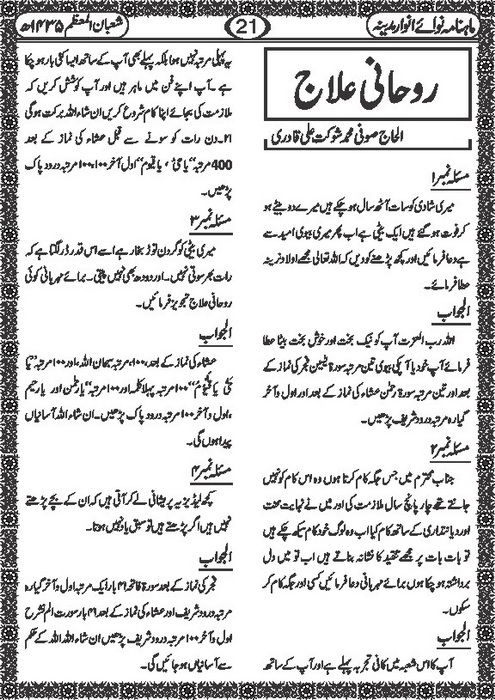 ماہنامہ نوائے انوار مدینہ
21
شعبان المعظم ۱۴۳۵ھ
روحانی علاج
الحاج صوفی محمد شوکت علی قادری
مسئلہ نمبر ۱
میری شادی کو سات آٹھ سال ہو چکے ہیں میرے دو بیٹے ہو
کر فوت ہو گئے ہیں ایک بیٹی ہے اب پھر میری بیوی امید سے
ہے دعا فرمائیں اور کچھ پڑھنے کو دیں کہ اللہ تعالیٰ مجھے اولاد نرینہ
عطا فرمائے۔
الجواب
اللہ رب العزت آپ کو نیک بخت اور خوش بخت بیٹا عطا
فرمائے آپ خود یا آپکی بیوی تین مرتبہ سورۃ یٰسین فجر کی نماز کے
بعد اور تین مرتبہ سورۃ رحمٰن عشاء کی نماز کے بعد اور اول و آخر
گیارہ مرتبہ درود شریف پڑھیں۔
مسئلہ نمبر ۲
جناب محترم میں جس جگہ کام کرتا ہوں وہ اس کام کو نہیں
جانتے تھے چار پانچ سال ملازمت کی اور میں نے نہایت محنت
اور دیانتداری کے ساتھ کام کیا اب وہ لوگ خود کام سیکھ چکے ہیں
تو بات بات پر مجھے تنقید کا نشانہ بناتے ہیں اب تو میں دل
برداشتہ ہو چکا ہوں برائے مہربانی دعا فرمائیں کسی اور جگہ کام کر
سکوں۔
الجواب
آپ کا اس شعبہ میں کافی تجربہ پہلے ہے اور آپ کے ساتھ
یہ پہلی مرتبہ نہیں ہوا بلکہ پہلے بھی آپ کے ساتھ ایسا کئی بار ہو چکا
ہے۔ آپ اپنے فن میں ماہر ہیں اور آپ کوشش کریں کہ
ملازمت کی بجائے اپنا کام شروع کریں ان شاء اللہ برکت ہوگی
۲۱۔دن رات کو سونے سے قبل عشاء کی نماز کے بعد
400 مرتبہ "یا حیُّ، یا قیوم" اول آخر ۱۰۰،۱۰۰ مرتبہ درود پاک
پڑھیں۔
مسئلہ نمبر ۳
میری بیٹی کو گردن توڑ بخار ہے اسے اس قدر ڈر لگتا ہے کہ
رات بھر سوتی نہیں۔ اور دودھ بھی نہیں پیتی۔ برائے مہربانی کوئی
روحانی علاج تجویز فرمائیں۔
الجواب
عشاء کی نماز کے بعد، ۱۰۰، مرتبہ سبحان اللہ، اور ۱۰۰ مرتبہ "یا
حیُّ یا قیُّومُ" ۱۰۰ مرتبہ پہلا کلمہ اور ۱۰۰ مرتبہ "یا رحمٰن اور یا رحیم
،اول و آخر ۱۰۰ مرتبہ درود پاک پڑھیں۔ ان شاء اللہ آسانیاں
پیدا ہوں گی۔
مسئلہ نمبر ۴
کچھ لیڈیز یہ پریشانی لے کر آتی ہیں کہ ان کے بچے پڑھتے
نہیں ہیں اگر پڑھتے ہیں تو سبق یاد نہیں ہوتا۔
الجواب
فجر کی نماز کے بعد سورۃ فاتحہ ۴۱ بار ایک مرتبہ اول و آخر گیارہ
مرتبہ درود شریف اور عشاء کی نماز کے بعد ۴۱ بار سورت الم نشرح
اول و آخر ۱۰۰ مرتبہ درود شریف پڑھیں ان شاء اللہ اللہ کے حکم
سے آسانیاں ہو جائیں گی۔